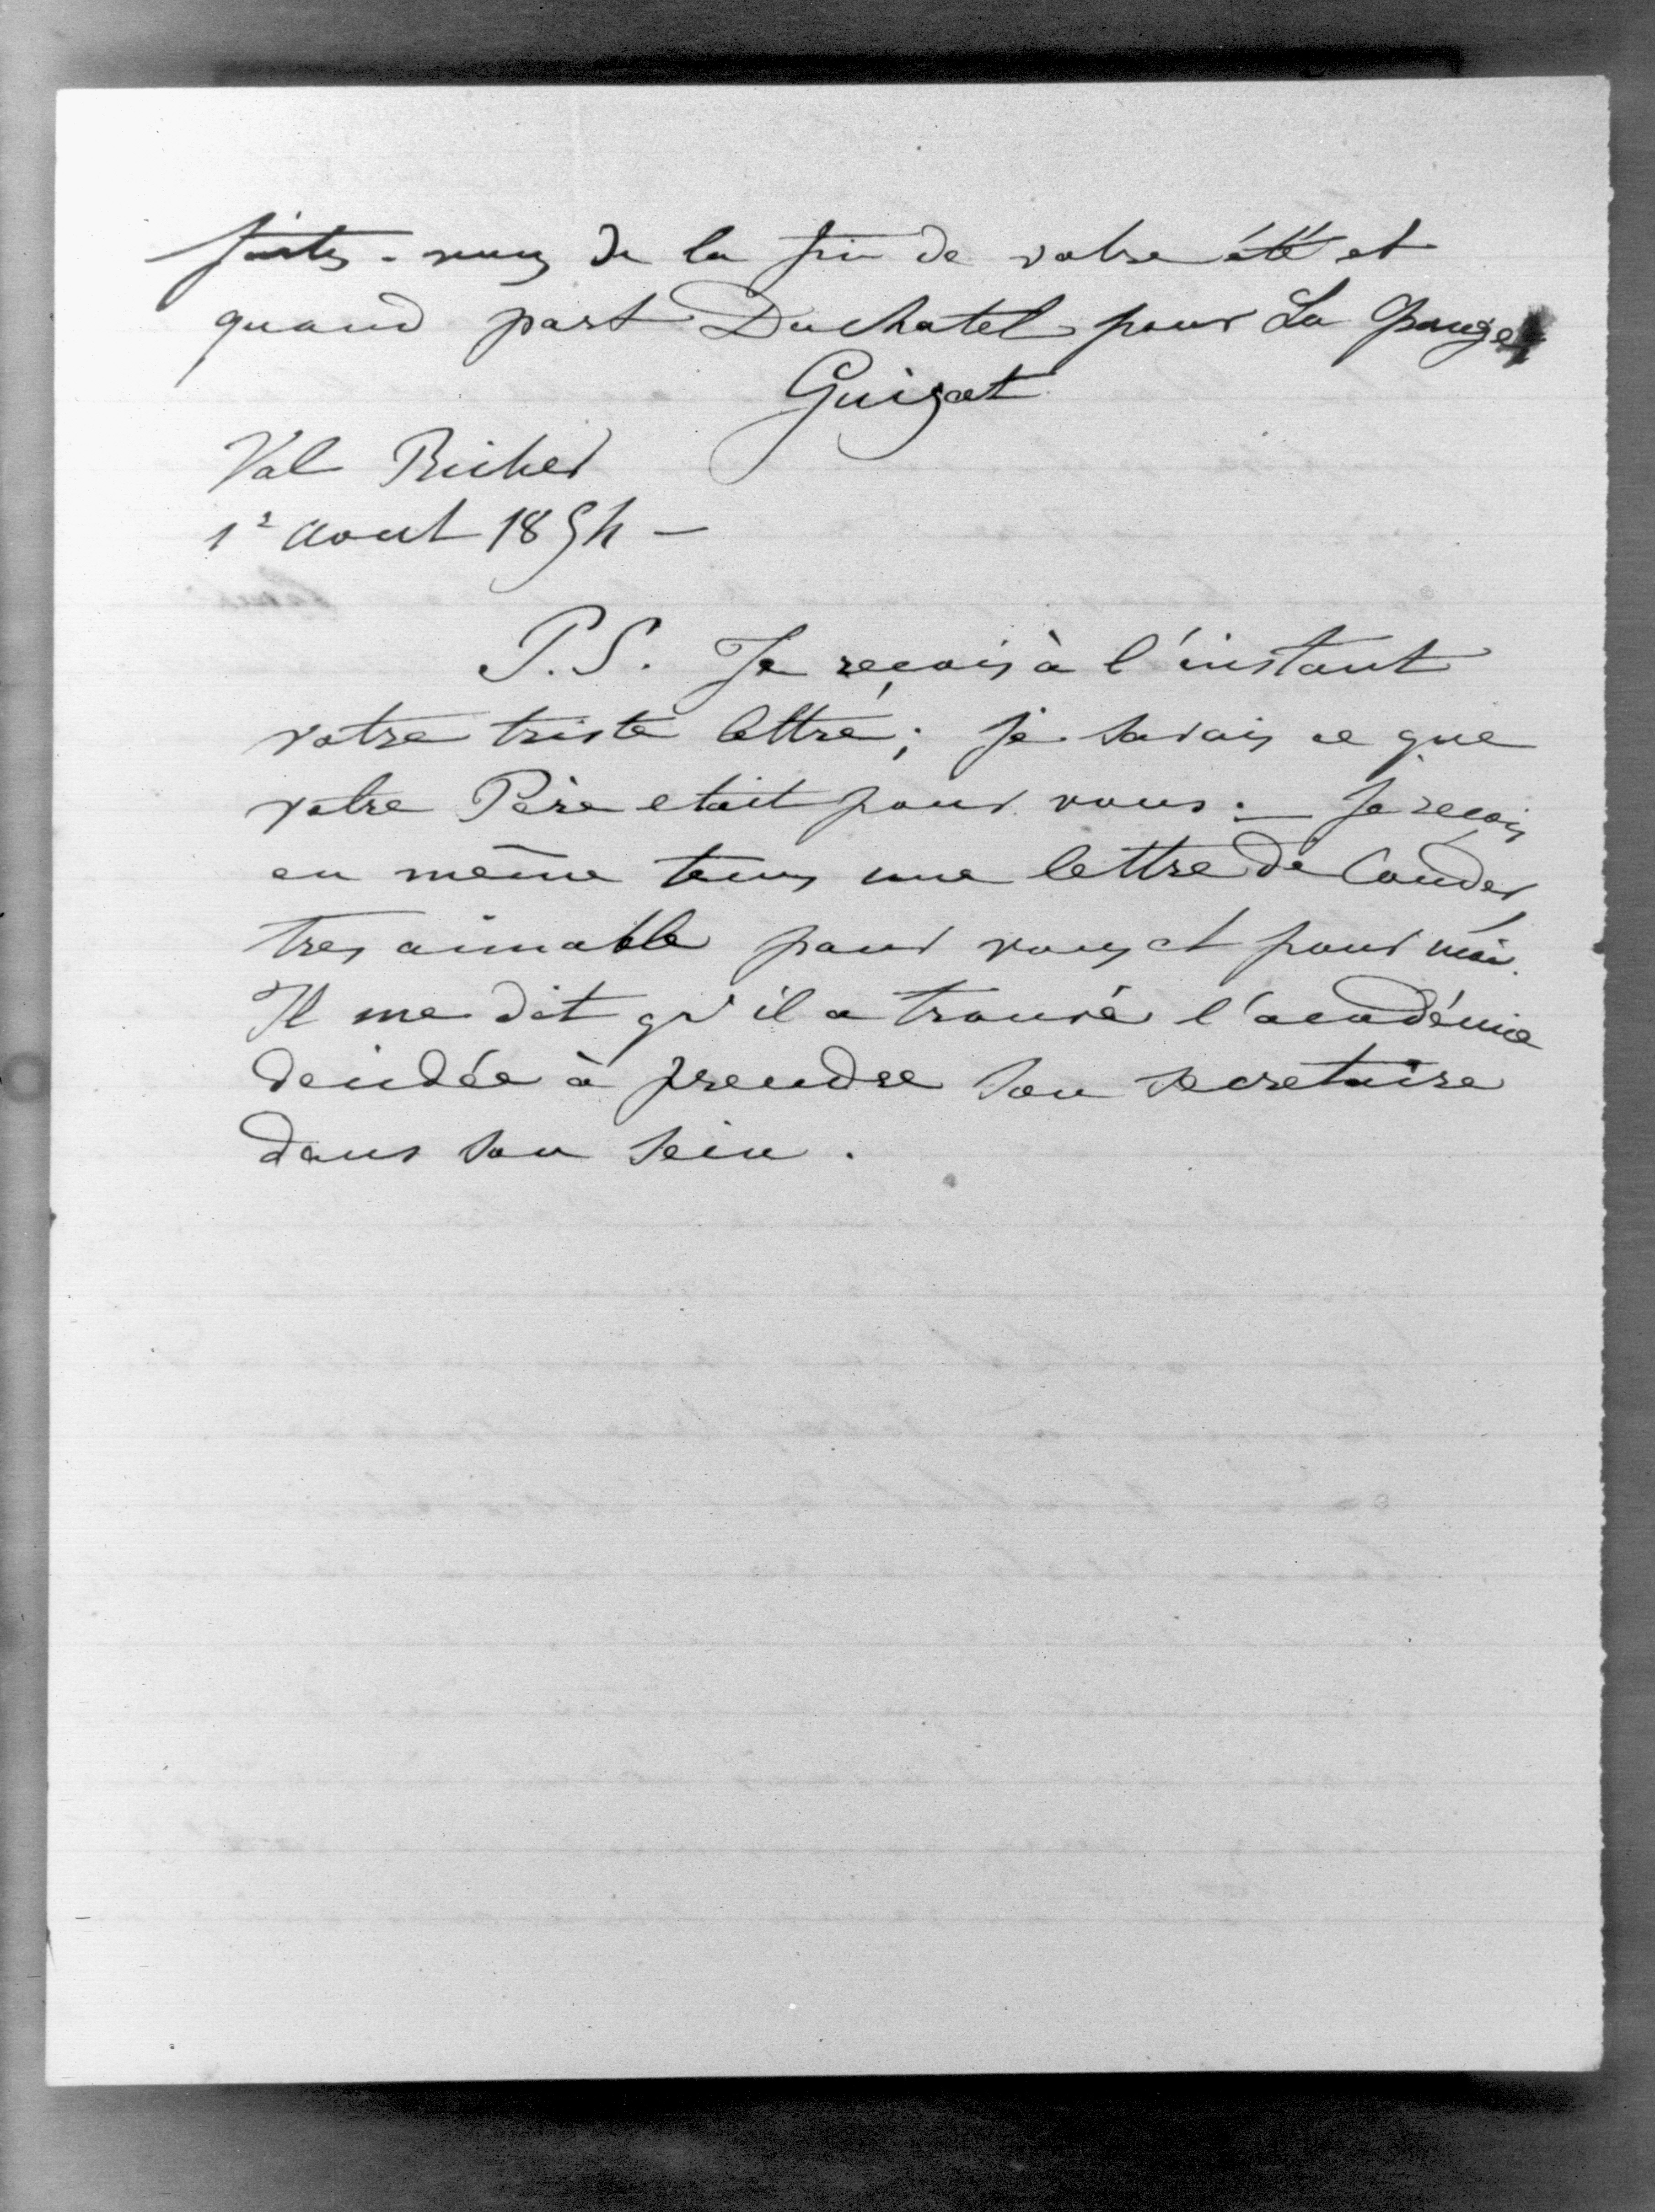 faites-vous de la fin de votre été et
quand part Duchatel pour La Grange
Guizot
Val Richer
1r Aout 1854 —
P.S. Je reçois à l'instant
votre triste lettre ; je savais ce que
votre Père etait pour vous. — Je reçois
en même tems une lettre de Couder
tres aimable pour vous et pour moi.
Il me dit qu'il a trouvé l'académie
décidée à prendre son secretaire
dans son sein.